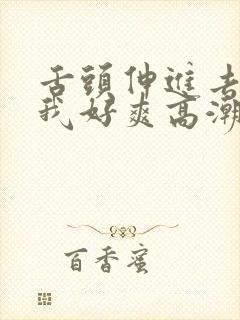 舌頭伸進去
我好爽高潮
百香蜜